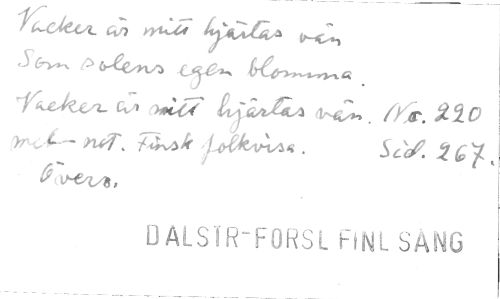 Vacker är mitt hjärtas vän
Som solens egen blomma.
Vacker är mitt hjärtas vän. No. 220
mel-not. Finsk folkvisa. Sid. 267.
Övers.
DALSTR-FORSL FINL SÅNG